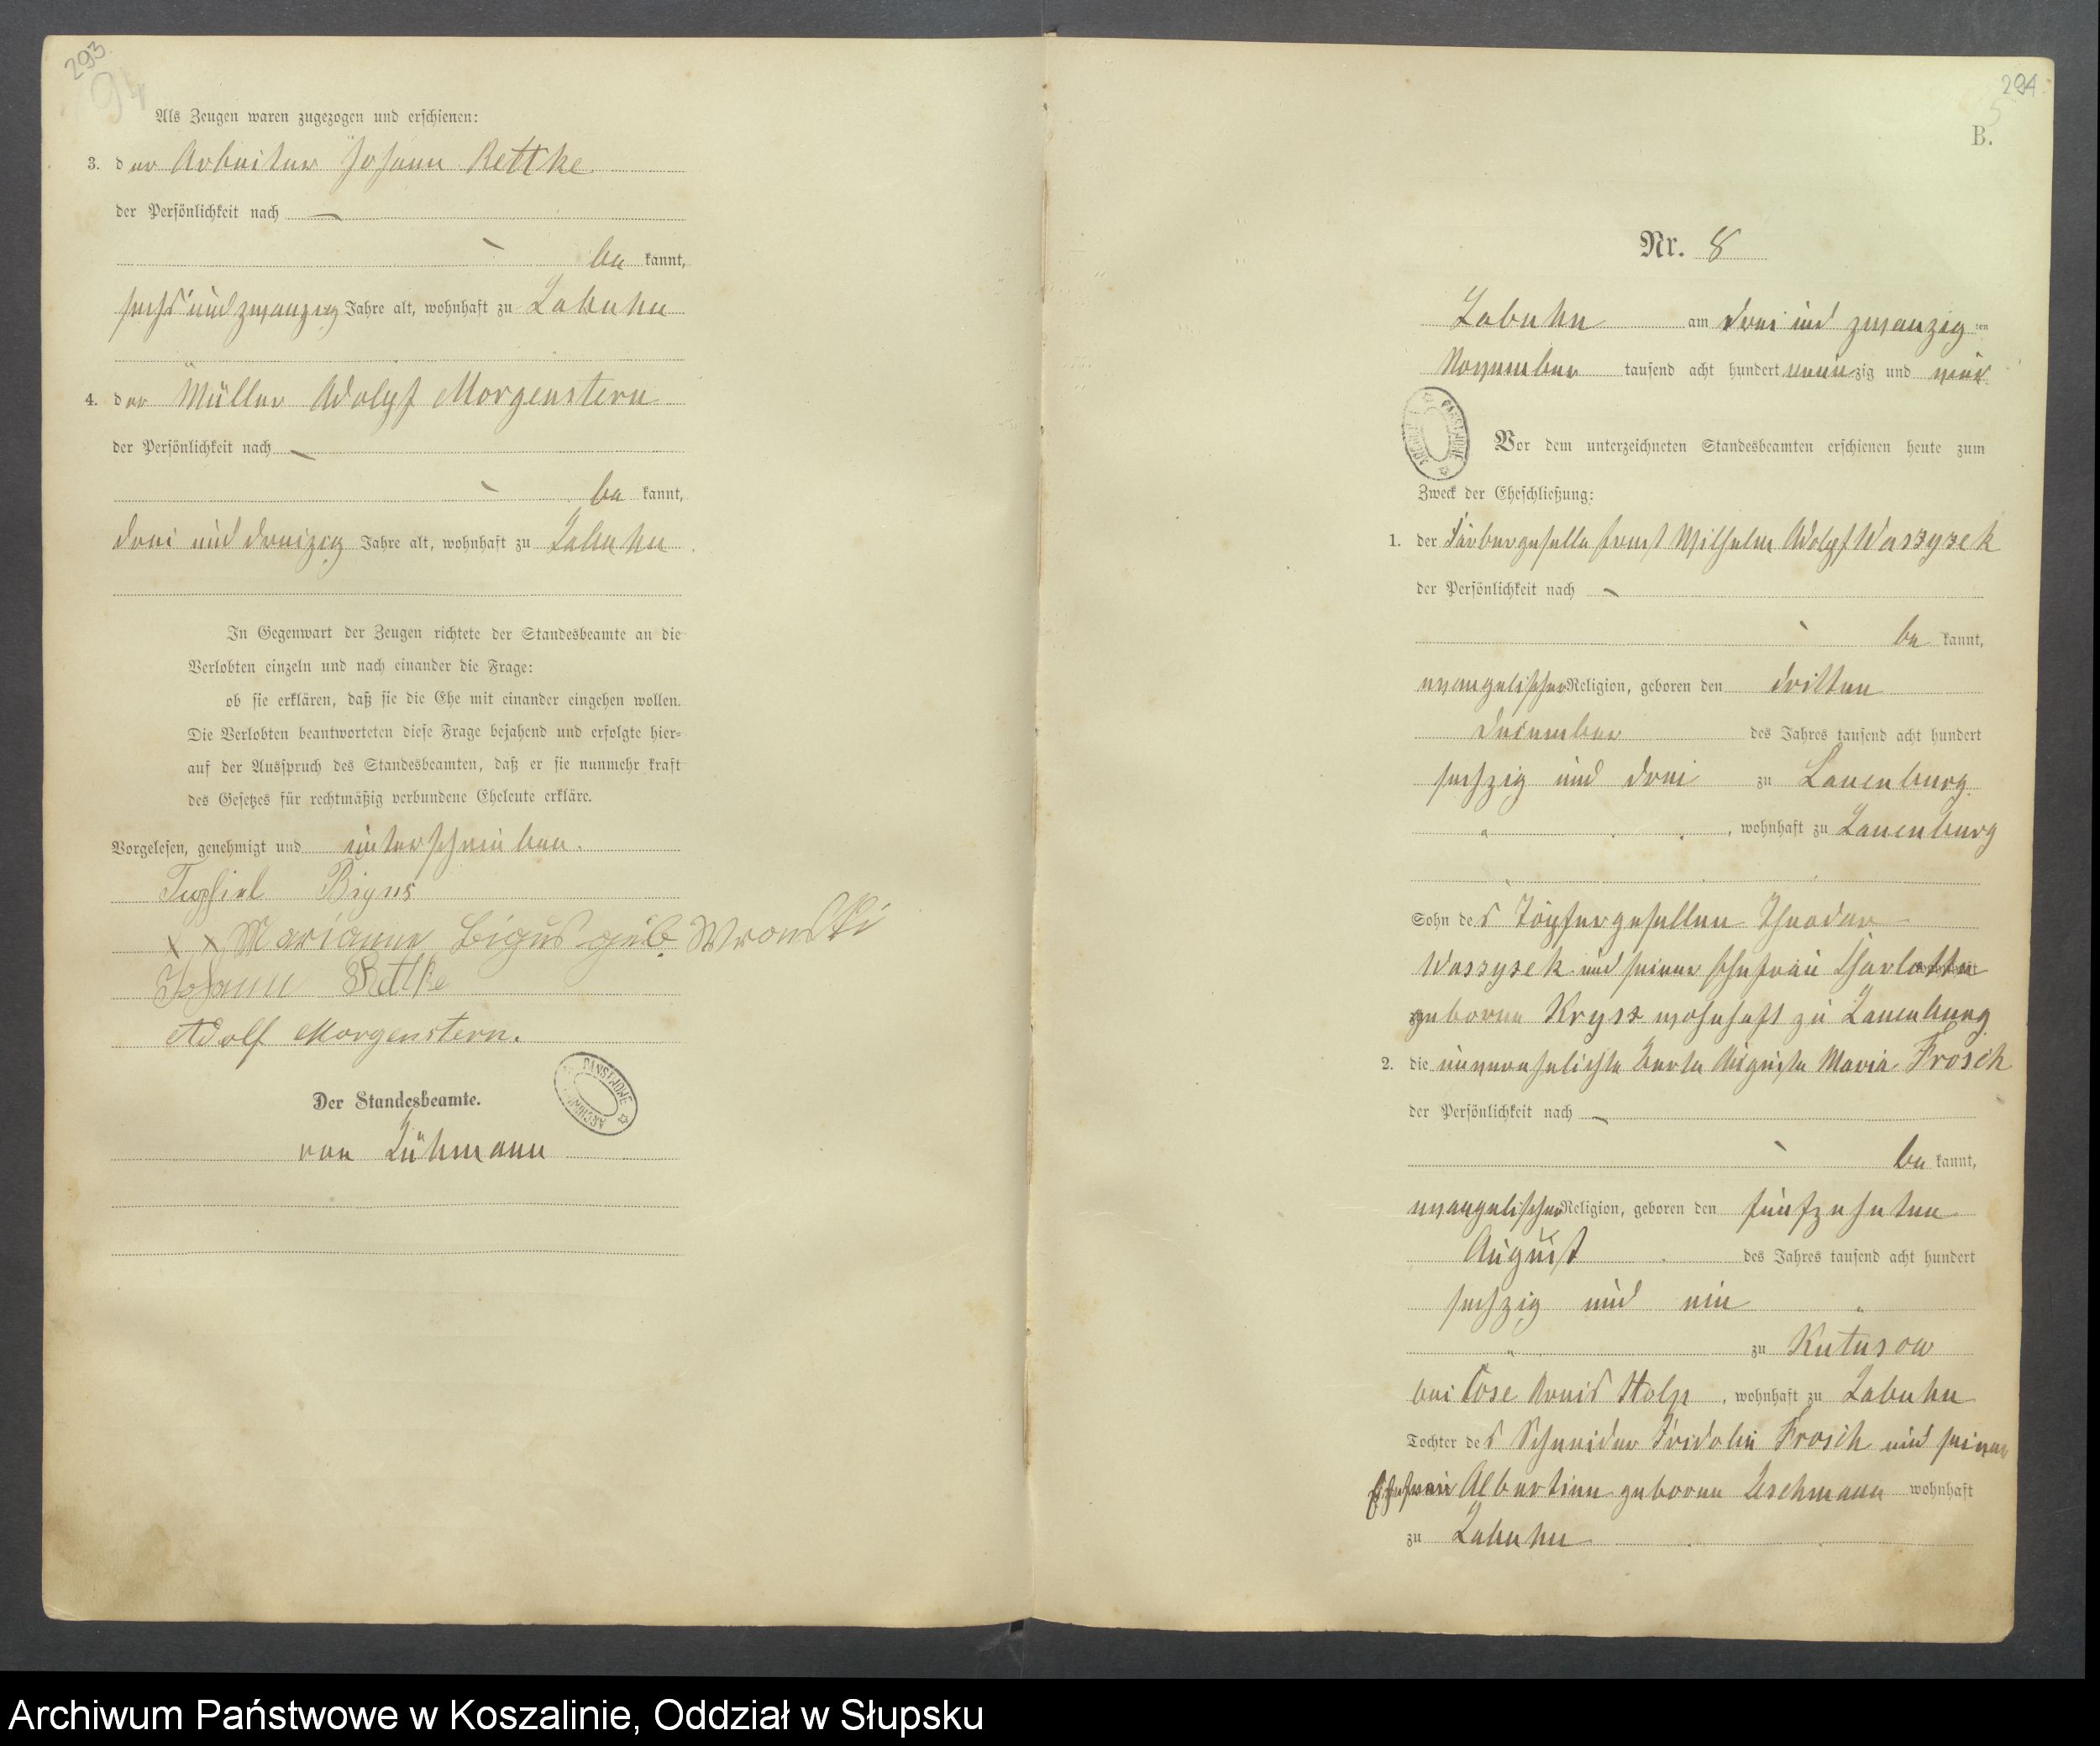 293
94
Als Zeugen waren zugezogen und erschienen:
3. der Arbeiter Johann Rettke
der Persönlichkeit nach —
be kannt,
sechs und zwanzig Jahre alt, wohnhaft zu Labuhn
4. der Müller Adolf Morgenstern
der Persönlichkeit nach —
be kannt,
drei und dreizig Jahre alt, wohnhaft zu Labuhn
In Gegenwart der Zeugen richtete der Standesbeamte an die
Verlobten einzeln und nach einander die Frage:
ob sie erklären, daß sie die Ehe mit einander eingehen wollen.
Die Verlobten beantworteten diese Frage bejahend und erfolgte hier-
auf der Ausspruch des Standesbeamten, daß er sie nunmehr kraft
des Gesetzes für rechtmäßig verbundene Eheleute erkläre.
Vorgelesen, genehmigt und unterschrieben.
Bigus
x x Marianne Bigus geb. Wronski
Johann Rettke
Adolf Morgenstern.
Der Standesbeamte.
von Lühmann
294
B.
Nr. 8
Labuhn am drei und zwanzig ten
November tausend acht hundert neunzig und vier
Vor dem unterzeichneten Standesbeamten erschienen heute zum
Zweck der Eheschließung:
1. der Färbergeselle Ernst Wilhelm Adolf Wassysek
der Persönlichkeit nach —
be kannt,
evangelischer Religion, geboren den dritten
Dezember des Jahres tausend acht hundert
sechzig und drei zu Lauenburg
, wohnhaft zu Lauenburg
Sohn des Töpfergesellen Theodor
Wassysek und seiner Ehefrau Charlotte
geborne Kryss wohnhaft zu Lauenburg
2. die unverehelichte Berta Auguste Maria Frosch
der Persönlichkeit nach —
be kannt,
evangelischer Religion, geboren den fünfzehnten
August des Jahres tausend acht hundert
sechzig und ein
zu Kutusow
bei Cose Kreis Stolp, wohnhaft zu Labuhn
Tochter des Schneider Fridolin Frosch und seiner
Ehefrau Albertine geborne Leschmann wohnhaft
zu Labuhn
Archiwum Państwowe w Koszalinie, Oddział w Słupsku